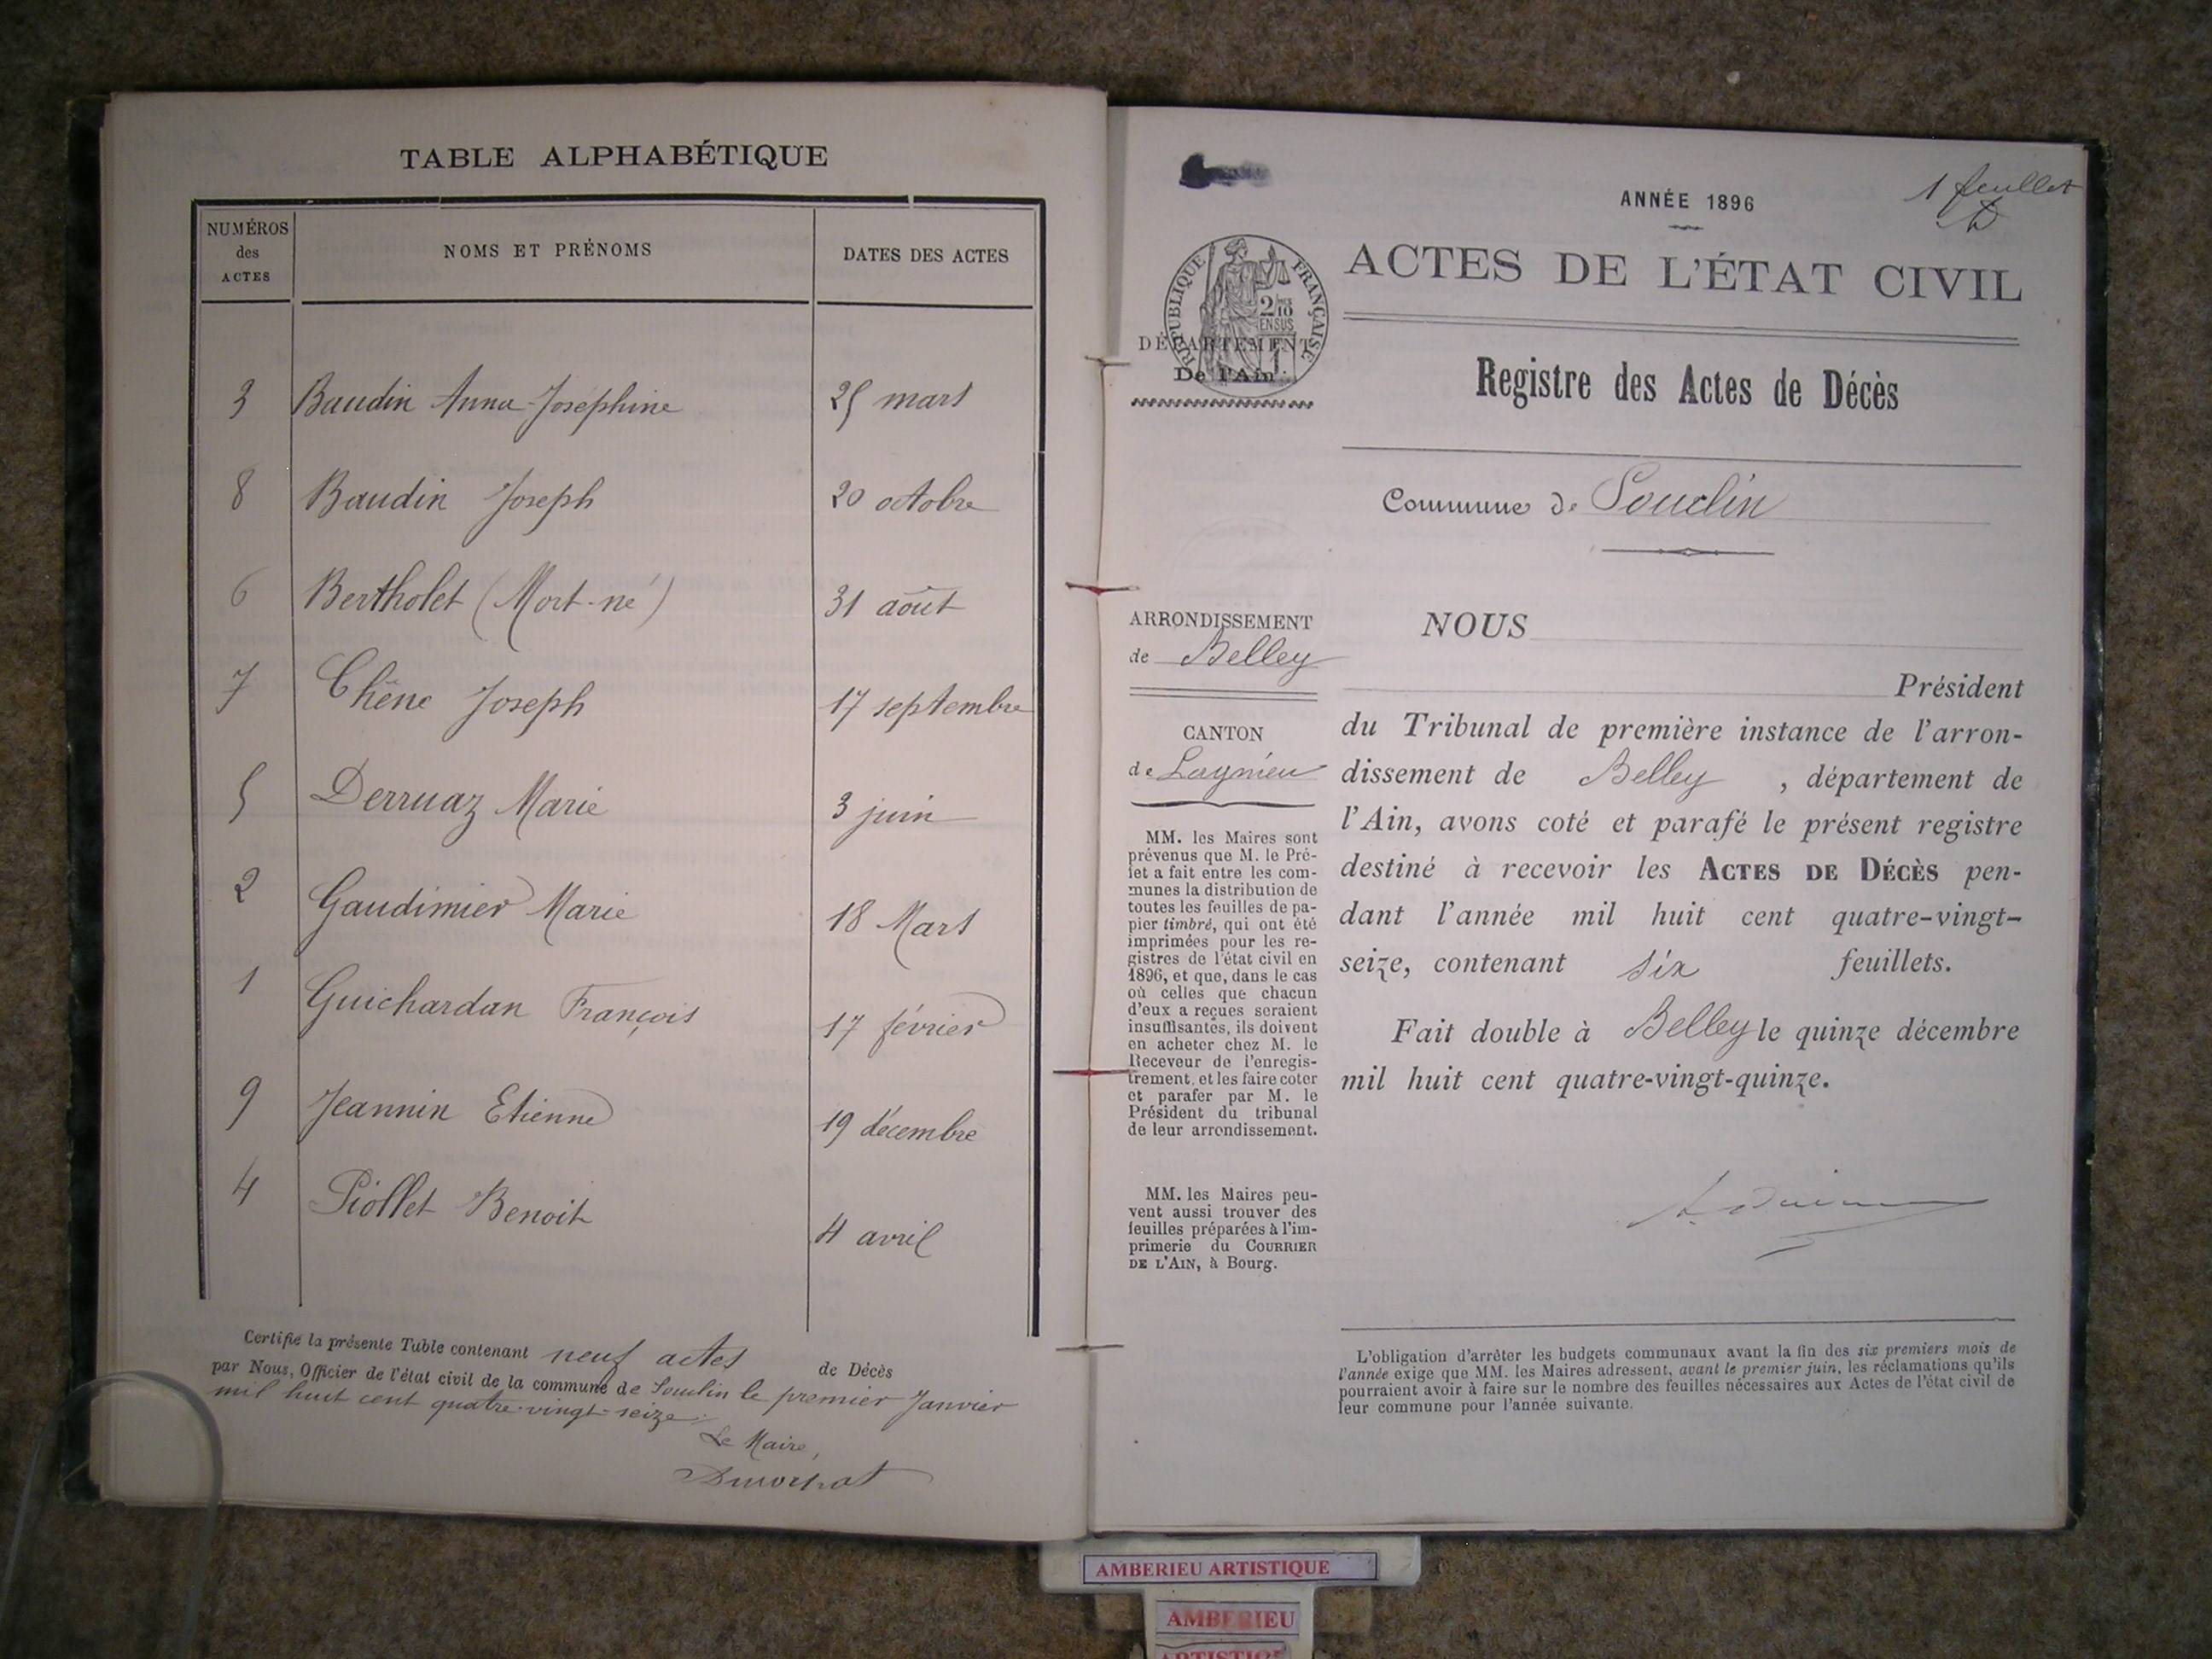 TABLE ALPHABÉTIQUE
NUMÉROS des ACTES
NOMS ET PRÉNOMS
DATES DES ACTES
3 Baudin Anna Joséphine 25 mars
8 Baudin Joseph 20 octobre
6 Bertholet (Mort-né) 31 août
7 Chêne Joseph 17 septembre
5 Derruaz Marie 3 juin
2 Gaudimier Marie 18 Mars
1 Guichardan François 17 février
9 Jeannin Etienne 19 décembre
4 Piollet Benoit 4 avril
Certifié la présente Table contenant neuf actes de Décès
par Nous, Officier de l'état civil de la commune de Souclin le premier Janvier
mil huit cent quatre-vingt-seize.
Le Maire,
1 feuillet
ANNÉE 1896
ACTES DE L'ÉTAT CIVIL
RÉPUBLIQUE FRANÇAISE
2/10
EN SUS
DÉPARTEMENT
De l'Ain
Registre des Actes de Décès
Commune de Souclin
ARRONDISSEMENT
de Belley
CANTON
de Lagnieu
MM. les Maires sont
prévenus que M. le Pré-
fet a fait entre les com-
munes la distribution de
toutes les feuilles de pa-
pier timbré, qui ont été
imprimées pour les re-
gistres de l'état civil en
1896, et que, dans le cas
où celles que chacun
d'eux a reçues seraient
insuffisantes, ils doivent
en acheter chez M. le
Receveur de l'enregis-
trement, et les faire coter
et parafer par M. le
Président du tribunal
de leur arrondissement.
MM. les Maires peu-
vent aussi trouver des
feuilles préparées à l'im-
primerie du COURRIER
DE L'AIN, à Bourg.
NOUS
Président
du Tribunal de première instance de l'arron-
dissement de Belley , département de
l'Ain, avons coté et parafé le présent registre
destiné à recevoir les ACTES DE DÉCÈS pen-
dant l'année mil huit cent quatre-vingt-
seize, contenant six feuillets.
Fait double à Belley le quinze décembre
mil huit cent quatre-vingt-quinze.
L'obligation d'arrêter les budgets communaux avant la fin des six premiers mois de
l'année exige que MM. les Maires adressent, avant le premier juin, les réclamations qu'ils
pourraient avoir à faire sur le nombre des feuilles nécessaires aux Actes de l'état civil de
leur commune pour l'année suivante.
AMBERIEU ARTISTIQUE
AMBERIEU
ARTISTIQUE